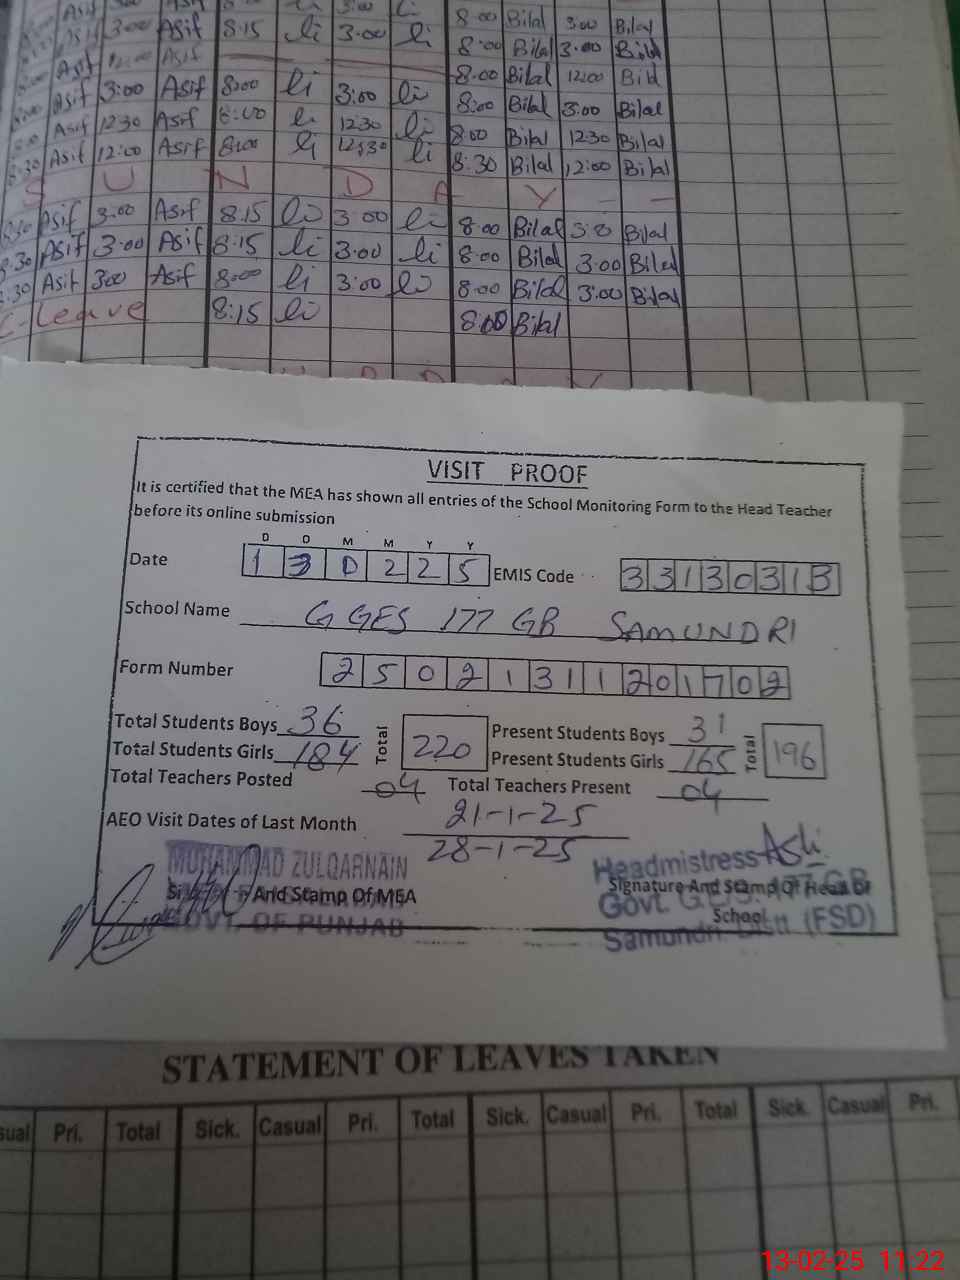 Asif 3:00 Asif 8:15 li 3:00 li 8:00 Bilal 3:00 Bilal
Asif 12:00 Asif 8:00 Bilal 3:00 Bilal
8:00 Bilal 12:00 Bilal
Asif 3:00 Asif 8:00 li 3:00 li 8:00 Bilal 3:00 Bilal
Asif 12:30 Asif 8:00 li 12:30 li 8:00 Bilal 12:30 Bilal
8:30 Asif 12:00 Asif 8:00 li 12:30 li 8:30 Bilal 12:00 Bilal
S U N D A Y
Asif 3:00 Asif 8:15 li 3:00 li 8:00 Bilal 3:0 Bilal
8:30 Asif 3:00 Asif 8:15 li 3:00 li 8:00 Bilal 3:00 Bilal
8:30 Asif 3:00 Asif 8:00 li 3:00 li 8:00 Bilal 3:00 Bilal
C-Leave 8:15 li 8:00 Bilal
VISIT PROOF
It is certified that the MEA has shown all entries of the School Monitoring Form to the Head Teacher
before its online submission
D D M M Y Y
Date 1 3 0 2 2 5 EMIS Code 3 3 1 3 0 3 1 3
School Name G GES 177 GB SAMUNDRI
Form Number 2 5 0 2 1 3 1 1 2 0 1 7 0 2
Total Students Boys 36 Total 220 Present Students Boys 31 Total 196
Total Students Girls 184 Present Students Girls 165
Total Teachers Posted 04 Total Teachers Present 04
AEO Visit Dates of Last Month 21-1-25
28-1-25
MUHAMMAD ZULQARNAIN Headmistress
And Stamp Of MEA Signature And Stamp Of Head Of
GOVT. OF PUNJAB Govt. G.E.S. 177 GB
School
Samundri Distt (FSD)
STATEMENT OF LEAVES TAKEN
Pri. Total Sick. Casual Pri. Total Sick. Casual Pri. Total Sick. Casual Pri.
13-02-25 11:22